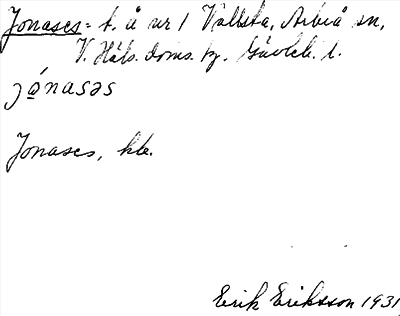 Jonases = t. å nr 1 Vallsta, Arbrå sn,
V. Häls. doms. hg. Gävleb. l.
jónasəs
Jonases, hle.
Erik Eriksson 1931.